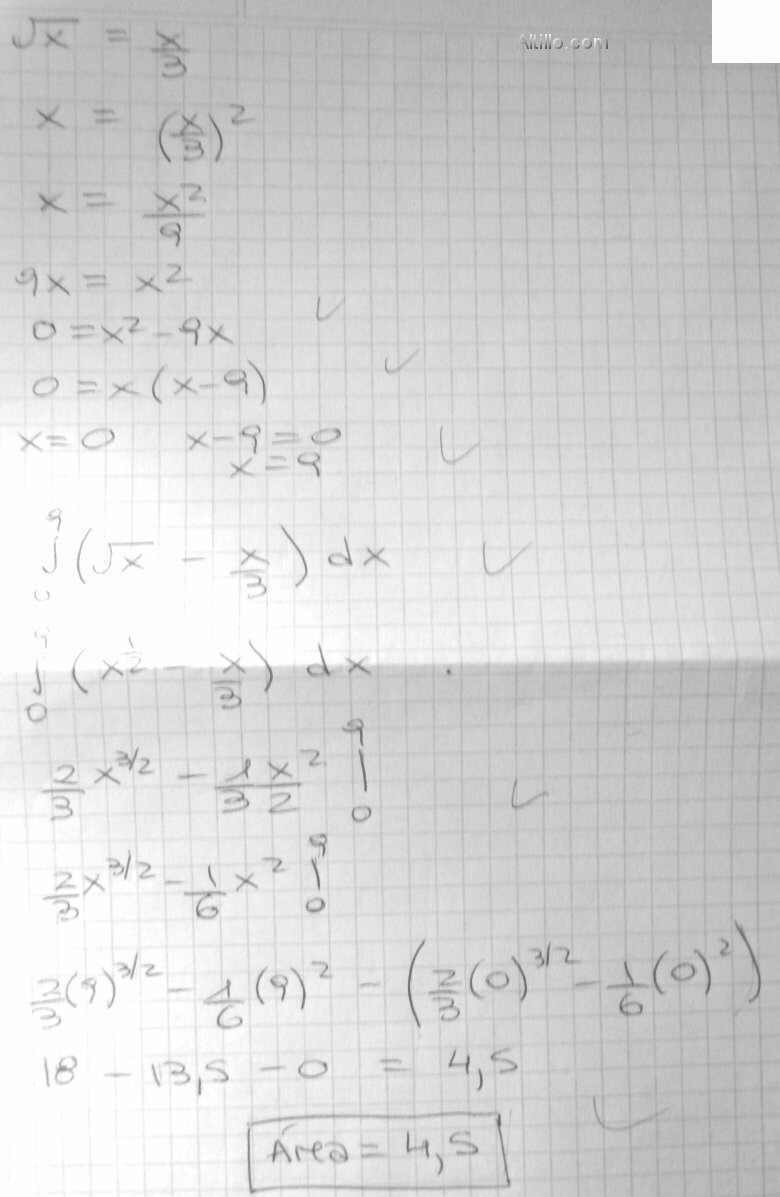 Altillo.com
√x = x/3
x = (x/3)²
x = x²/9
9x = x²
0 = x² - 9x
0 = x (x-9)
x = 0 x-9 = 0
x = 9
∫₀⁹ (√x - x/3) dx
∫₀⁹ (x^1/2 - x/3) dx .
2/3 x^3/2 - 1/3 x²/2 |₀⁹
2/3 x^3/2 - 1/6 x² |₀⁹
2/3 (9)^3/2 - 1/6 (9)² - (2/3 (0)^3/2 - 1/6 (0)²)
18 - 13,5 - 0 = 4,5
Área = 4,5